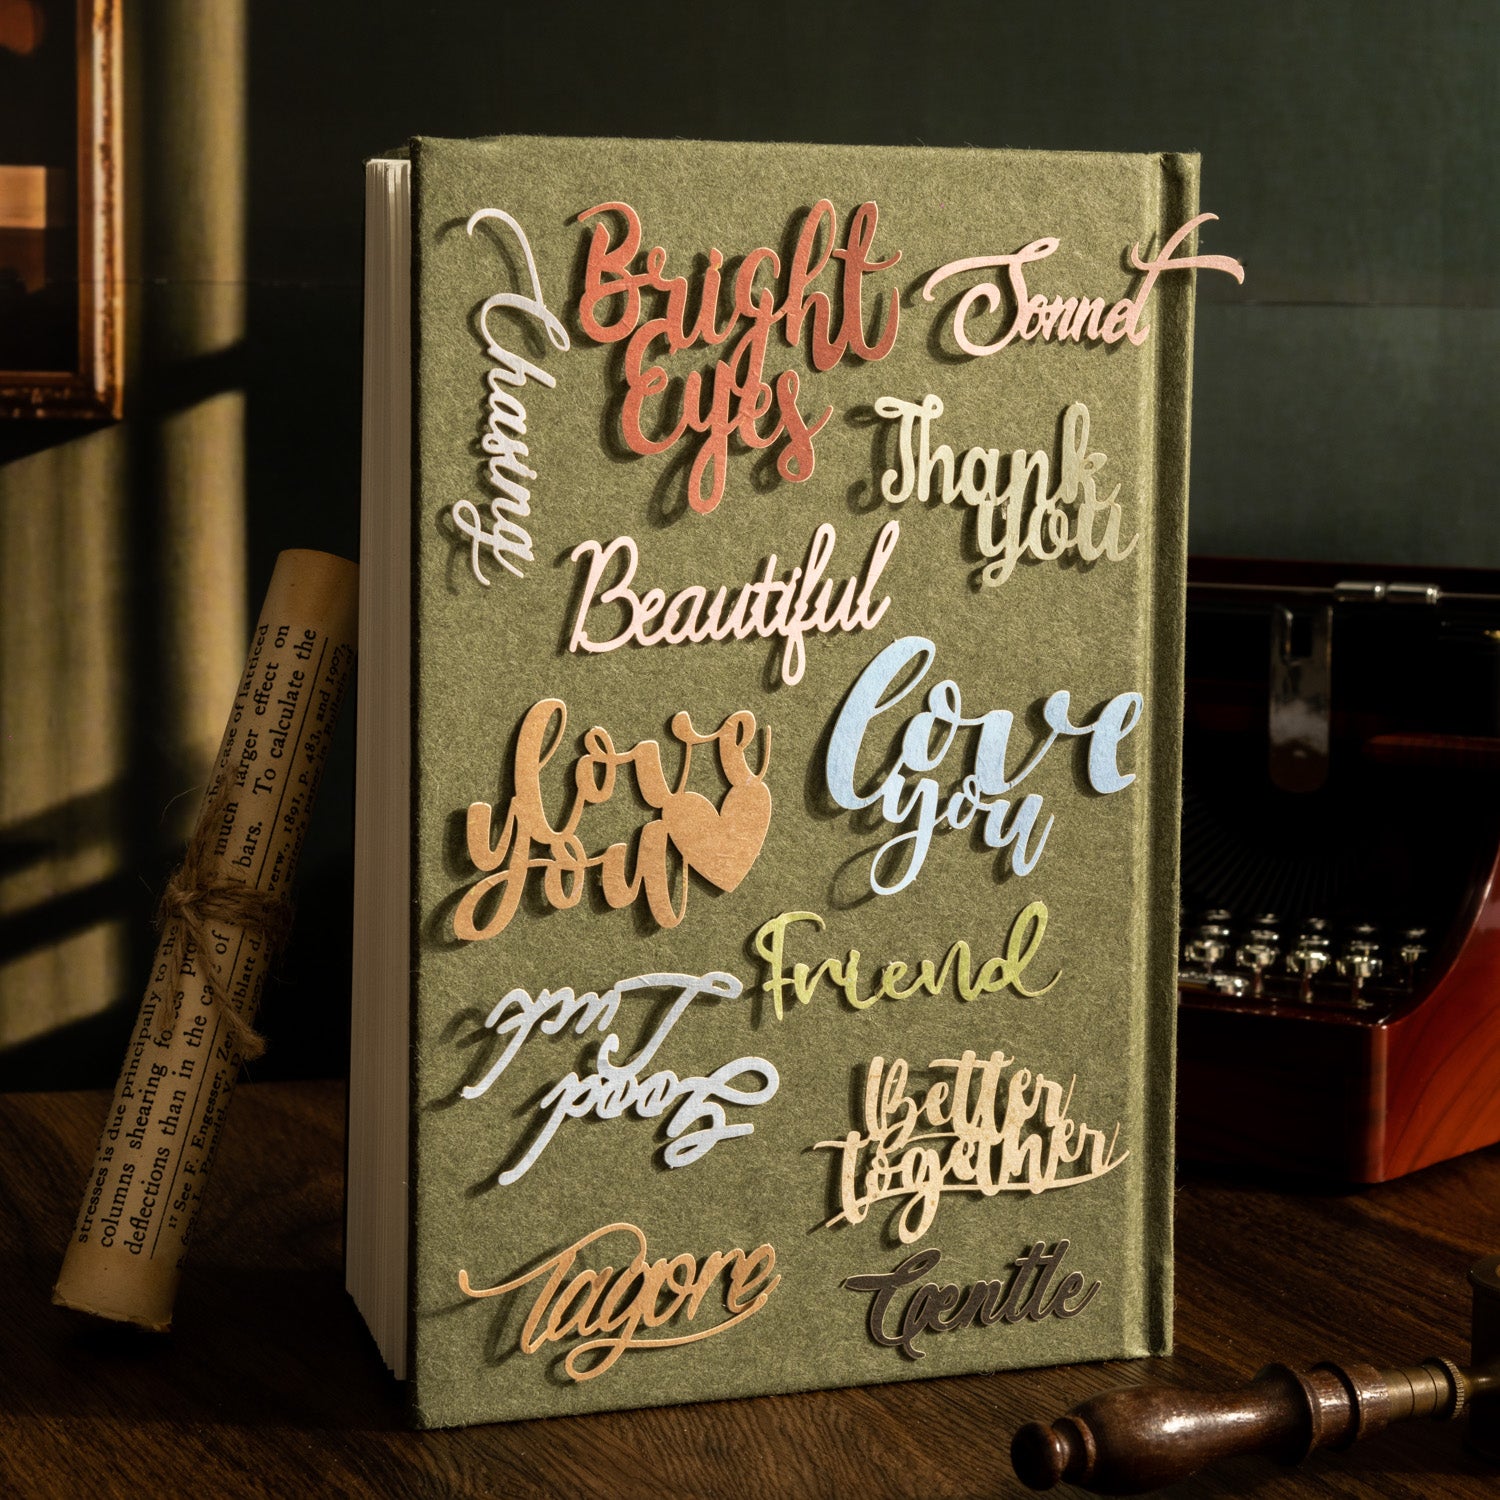 Chasing
Bright
Eyes
Sonnet
Thank
you
Beautiful
love
you
love
you
Friend
Good
Luck
Better
together
Tagore
Gentle
the case of latticed
much larger effect on
bars. To calculate the
verw., 1891, p. 483, and 1907,
stresses is due principally to the
columns shearing
deflections than in the
17 See F. Engesser,